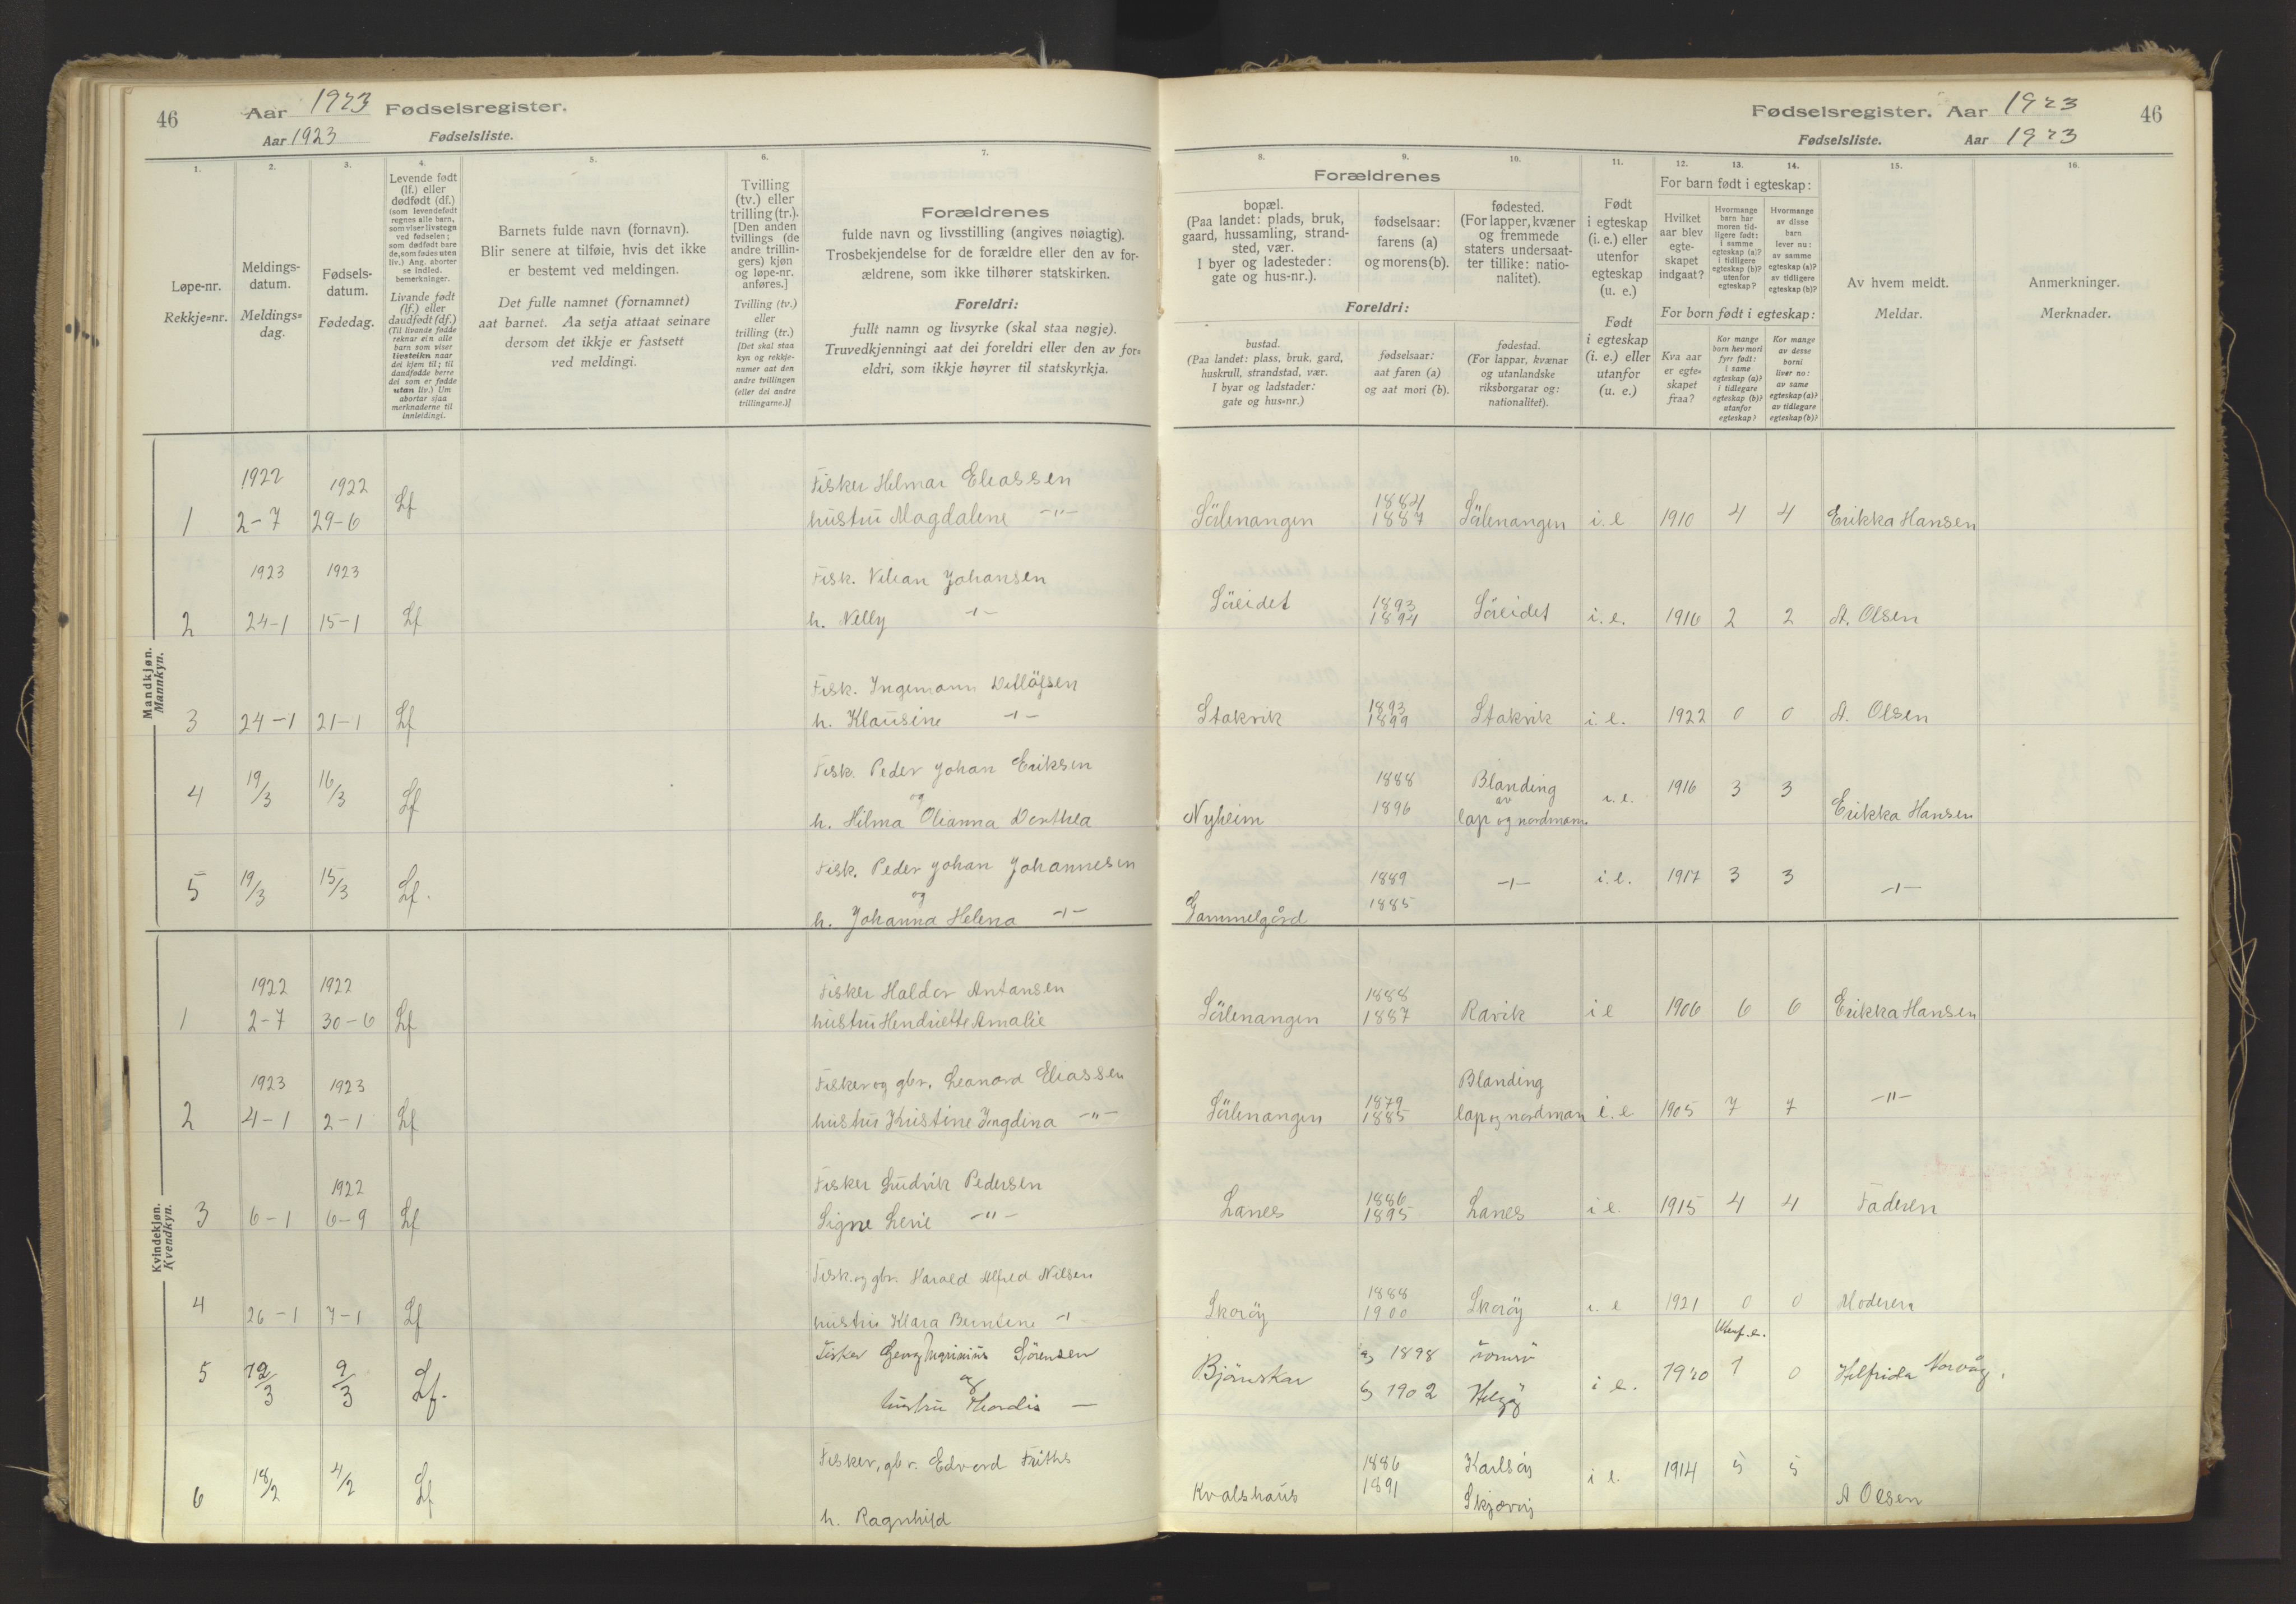 46 Aar 1923 Fødselsregister.
Aar 1923 Fødselsliste.
Fødselsregister. Aar 1923 46
Fødselsliste. Aar 1923
1. 2. 3. 4. 5. 6. 7.
Løpe-nr.
Rekkje=nr.
Meldings-
datum.
Meldings=
dag.
Fødsels-
datum.
Fødedag.
Levende født
(lf.) eller
dødfødt (df.)
(som levendefødt
regnes alle barn,
som viser livstegn
ved fødselen;
som dødfødt bare
de, som fødes uten
liv.) Ang. aborter
se indled.
bemerkninger.
Livande født
(lf.) eller
daudfødt (df.)
(Til livande fødde
reknar ein alle
barn som viser
livsteikn naar
dei kjem til; til
daudfødde berre
dei som er fødde
utan liv.) Um
abortar sjaa
merknaderne til
innleidingi.
Barnets fulde navn (fornavn).
Blir senere at tilføie, hvis det ikke
er bestemt ved meldingen.
Det fulle namnet (fornamnet)
aat barnet. Aa setja attaat seinare
dersom det ikkje er fastsett
ved meldingi.
Tvilling
(tv.) eller
trilling (tr.).
[Den anden
tvillings (de
andre trillin-
gers) kjøn
og løpe-nr.
anføres.]
Tvilling (tv.)
eller
trilling (tr.)
[Det skal staa
kyn og rekkje-
numer aat den
andre tvillingen
(eller dei andre
trillingarne.)]
Forældrenes
fulde navn og livsstilling (angives nøiagtig).
Trosbekjendelse for de forældre eller den av for-
ældrene, som ikke tilhører statskirken.
Foreldri:
fullt namn og livsyrke (skal staa nøgje).
Truvedkjenningi aat dei foreldri eller den av for=
eldri, som ikkje høyrer til statskyrkja.
8. 9. 10. 11. 12. 13. 14. 15. 16.
Forældrenes
bopæl.
(Paa landet: plads, bruk,
gaard, hussamling, strand-
sted, vær.
I byer og ladesteder:
gate og hus-nr.).
fødselsaar:
farens (a)
og morens (b).
fødested.
(For lapper, kvæner
og fremmede
staters undersaat-
ter tillike: natio-
nalitet).
Foreldri:
bustad.
(Paa landet: plass, bruk, gard,
huskrull, strandstad, vær.
I byar og ladstader:
gate og hus=nr.)
fødselsaar:
aat faren (a)
og aat mori (b).
fødestad.
(For lappar, kvænar
og utanlandske
riksborgarar og:
nationalitet).
Født
i egteskap
(i. e.) eller
utenfor
egteskap
(u. e.)
Født
i egteskap
(i. e.) eller
utanfor
(u. e.)
For barn født i egteskap:
Hvilket
aar blev
egte-
skapet
indgaat?
Hvormange
barn har
moren tid-
ligere født:
i samme
egteskap (a)?
i tidligere
egteskap (b)?
utenfor
egteskap?
Hvormange
av disse
barn
lever nu:
av samme
egteskap (a)?
av tidligere
egteskap (b)?
For born født i egteskap:
Kva aar
er egte=
skapet
fraa?
Kor mange
born hev mori
fyrr født:
i same
egteskap (a)?
i tidlegare
egteskap (b)?
utanfor
egteskap?
Kor mange
av desse
borni
liver no:
av same
egteskap (a)?
av tidlegare
egteskap (b)?
Av hvem meldt.
Meldar.
Anmerkninger.
Merknader.
Mandkjøn.
Mannkyn.
1922 1922 Fisker Hilmar Eliassen 1884
1 2-7 29-6 Lf hustru Magdalene -"- Sörlenangen 1887 Sörlenangen i.e 1910 4 4 Erikka Hansen
1923 1923 Fisk. Vilian Johansen 1893
2 24-1 15-1 Lf h. Nelly -"- Söreidet 1894 Söreidet i.e. 1916 2 2 A. Olsen
Fisk. Ingemann Detlöfsen 1893
3 24-1 21-1 Lf h. Klausine -"- Stakvik 1899 Stakvik i.e. 1922 0 0 A. Olsen
Fisk. Peder Johan Eriksen 1888 Blanding
4 19/3 16/3 Lf og 1896 av i.e. 1916 3 3
h. Hilma Olianna Dorthea Nyheim lap og nordmann Erikka Hansen
Fisk. Peder Johan Johannesen 1889
5 19/3 15/3 Lf. og 1885 -"- i.e. 1917 3 3 -"-
h. Johanna Helena -"- Gammelgård
Kvindekjøn.
Kvendkyn.
1922 1922 Fisker Haldor Antonsen 1888
1 2-7 30-6 Lf hustru Hendriette Amalie Sörlenangen 1887 Ravik i e 1906 6 6 Erikka Hansen
1923 1923 Fisker og gbr. Leonard Eliassen 1879 Blanding
2 4-1 2-1 Lf hustru Kristine Ingdina -"- Sörlenangen 1885 lap og nordman i.e 1905 7 7 -"-
1922 Fisker Ludvik Pedersen 1886
3 6-1 6-9 Lf Signe Lerie -"- Lanes 1895 Lanes i e. 1915 4 4 Faderen
Fisk. og gbr. Harald Alfred Nilsen 1888
4 26-1 7-1 Lf hustru Klara Berntine -"- Skoröy 1900 Skoröy i. e 1921 0 0 Moderen
Utenf. e.
Fisker Georg Sörensen a) 1898 Tromsö
5 12/3 9/3 Lf. og Björnskar i e. 1920 1 0 Helfrida Norvåg.
hustru Thordis — b) 1902 Helgöy
Fisker, gbr. Edvard Friths 1886 Karlsöy
6 18/2 4/2 Lf Kvalshaus 1891 Skjærvöy i e. 1914 5 5 A Olsen
h. Ragnhild